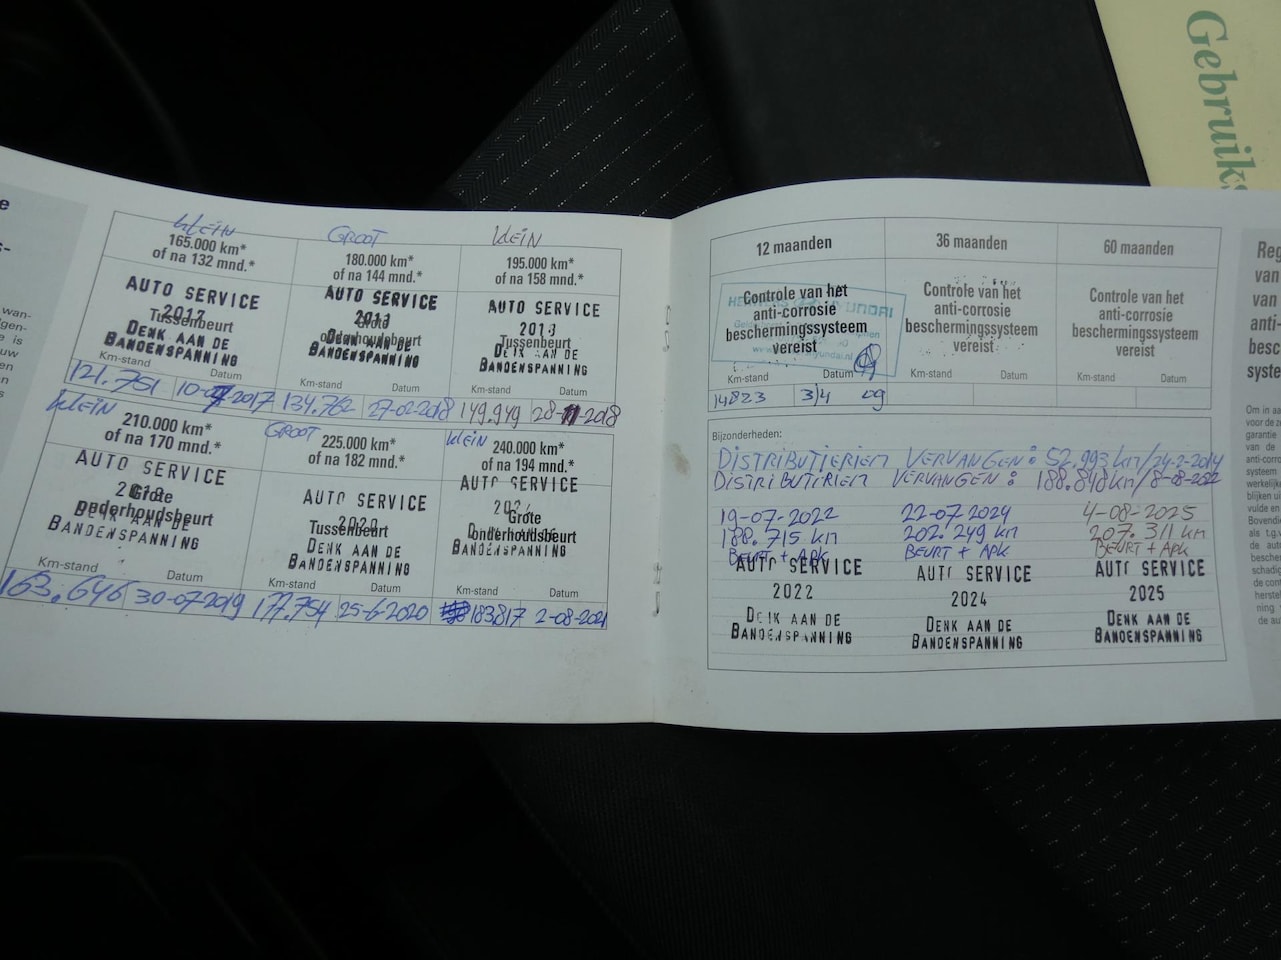 Gebruiks
KLEIN
165.000 km*
of na 132 mnd.*
AUTO SERVICE
2017
Tussenbeurt
DENK AAN DE
BANDENSPANNING
Km-stand
Datum
121.751
GROOT
180.000 km*
of na 144 mnd.*
AUTO SERVICE
Grote
onderhoudsbeurt
DENK AAN DE
BANDENSPANNING
Km-stand
Datum
134.762
27-02-2018
KLEIN
195.000 km*
of na 158 mnd.*
AUTO SERVICE
Tussenbeurt
DENK AAN DE
BANDENSPANNING
Km-stand
Datum
149.949
28-11-2018
KLEIN
210.000 km*
of na 170 mnd.*
AUTO SERVICE
Grote
onderhoudsbeurt
DENK AAN DE
BANDENSPANNING
Km-stand
Datum
163.646
30-07-2019
GROOT
225.000 km*
of na 182 mnd.*
AUTO SERVICE
2020
Tussenbeurt
DENK AAN DE
BANDENSPANNING
Km-stand
Datum
177.754
25-6-2020
KLEIN
240.000 km*
of na 194 mnd.*
AUTO SERVICE
Grote
onderhoudsbeurt
DENK AAN DE
BANDENSPANNING
Km-stand
Datum
183817
2-08-2021
12 maanden
Controle van het
anti-corrosie
beschermingssysteem
vereist
Km-stand
Datum
14823
3/4 09
36 maanden
Controle van het
anti-corrosie
beschermingssysteem
vereist
Km-stand
Datum
60 maanden
Controle van het
anti-corrosie
beschermingssysteem
vereist
Km-stand
Datum
Bijzonderheden:
DISTRIBUTIERIEM VERVANGEN: 52.993 km/24-2-2014
DISTRIBUTIERIEM VERVANGEN: 188.848 km/8-08-2022
19-07-2022
188.715 km
BEURT + APK
AUTO SERVICE
2022
DENK AAN DE
BANDENSPANNING
22-07-2024
202.249 km
BEURT + APK
AUTO SERVICE
2024
DENK AAN DE
BANDENSPANNING
4-08-2025
207.311 km
BEURT + APK
AUTO SERVICE
2025
DENK AAN DE
BANDENSPANNING
Reg
van
van
anti-
besc
syste